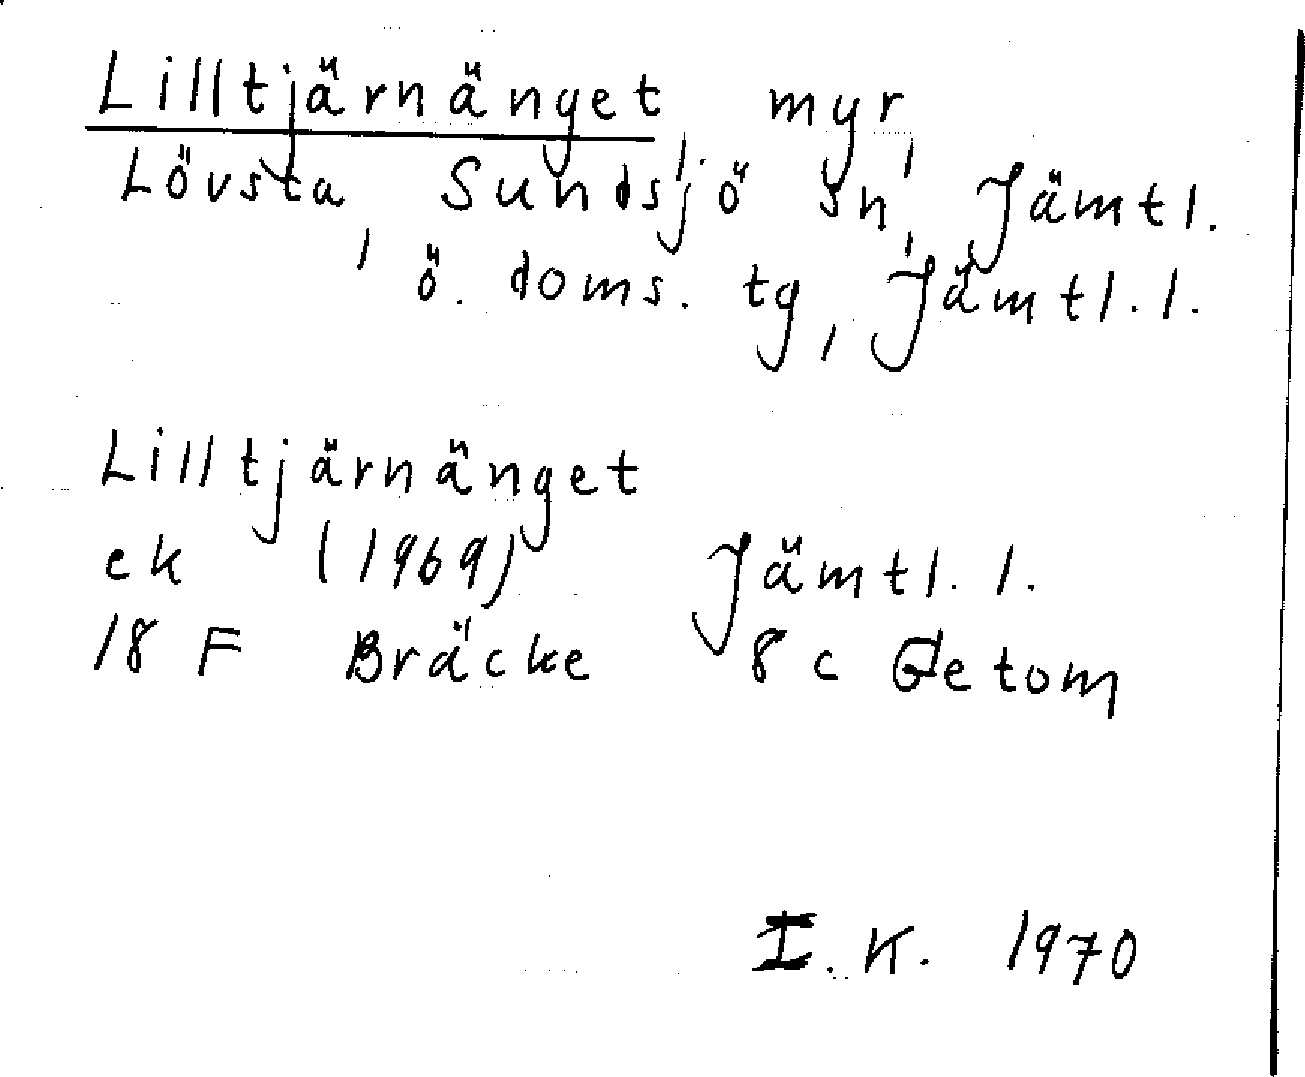 Lilltjärnänget, myr,
Lövsta, Sundsjö sn, Jämtl.
ö. doms. tg, Jämtl. l.
Lilltjärnänget
ek (1969) Jämtl. l.
18 F Bräcke 8 c Getom
I. K. 1970